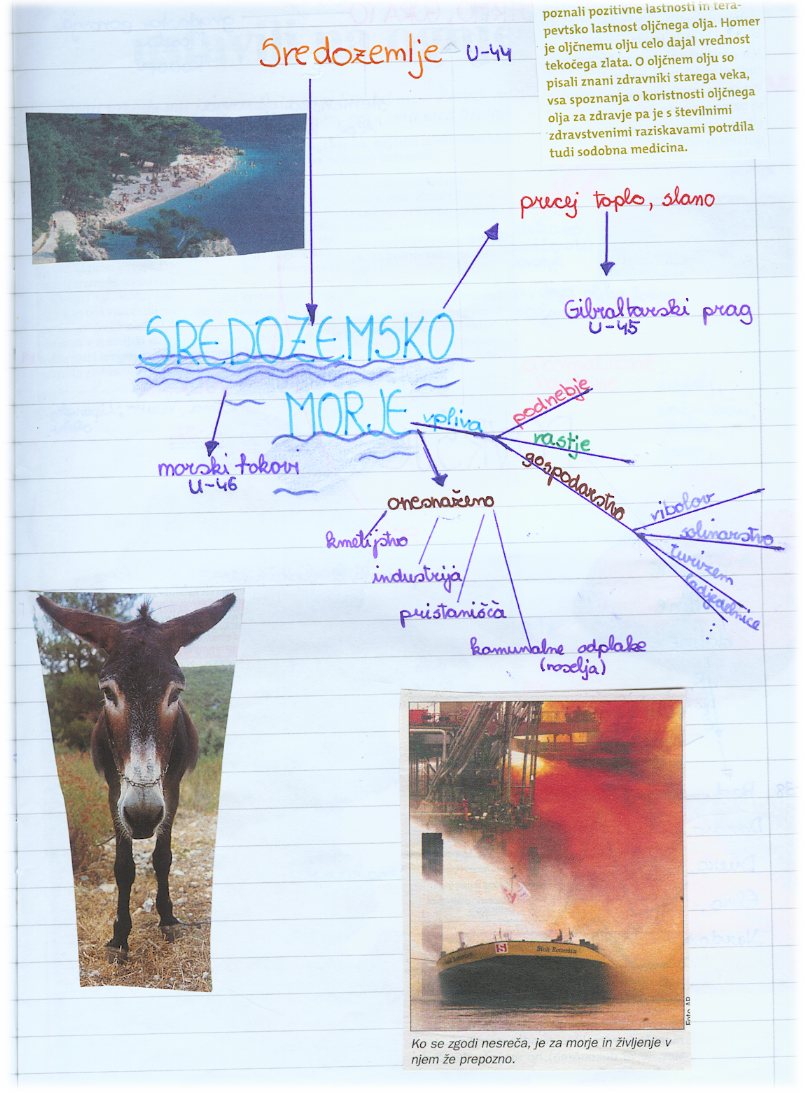 Sredozemlje U-44
poznali pozitivne lastnosti in tera-
pevtsko lastnost oljčnega olja. Homer
je oljčnemu olju celo dajal vrednost
tekočega zlata. O oljčnem olju so
pisali znani zdravniki starega veka,
vsa spoznanja o koristnosti oljčnega
olja za zdravje pa je s številnimi
zdravstvenimi raziskavami potrdila
tudi sodobna medicina.
precej toplo, slano
Gibraltarski prag
U-45
SREDOZEMSKO
MORJE
vpliva
podnebje
rastje
gospodarstvo
ribolov
solinarstvo
turizem
ladjedelnice
...
morski tokovi
U-46
onesnaženo
kmetijstvo
industrija
pristanišča
komunalne odplake
(naselja)
Foto AP
Ko se zgodi nesreča, je za morje in življenje v
njem že prepozno.